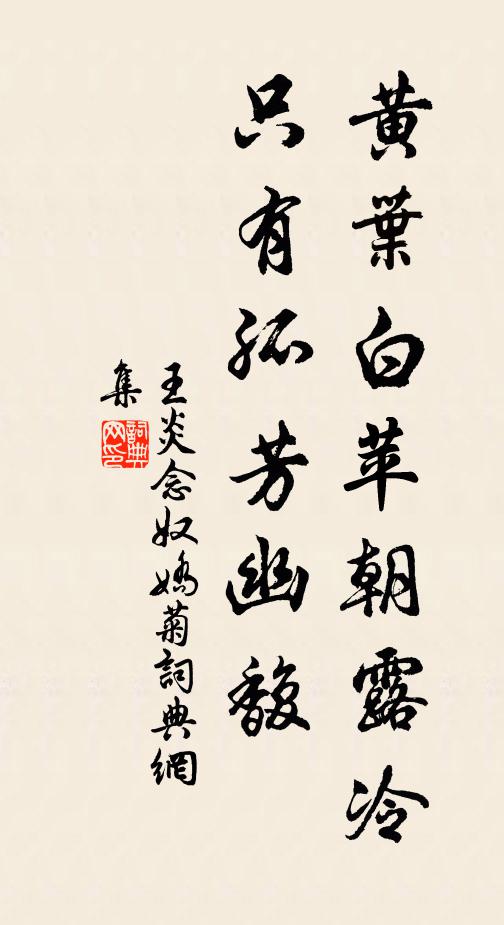 黃葉白苹朝露冷
只有孤芳幽馥
王炎念奴嬌菊詞典網
集
詞典
网印